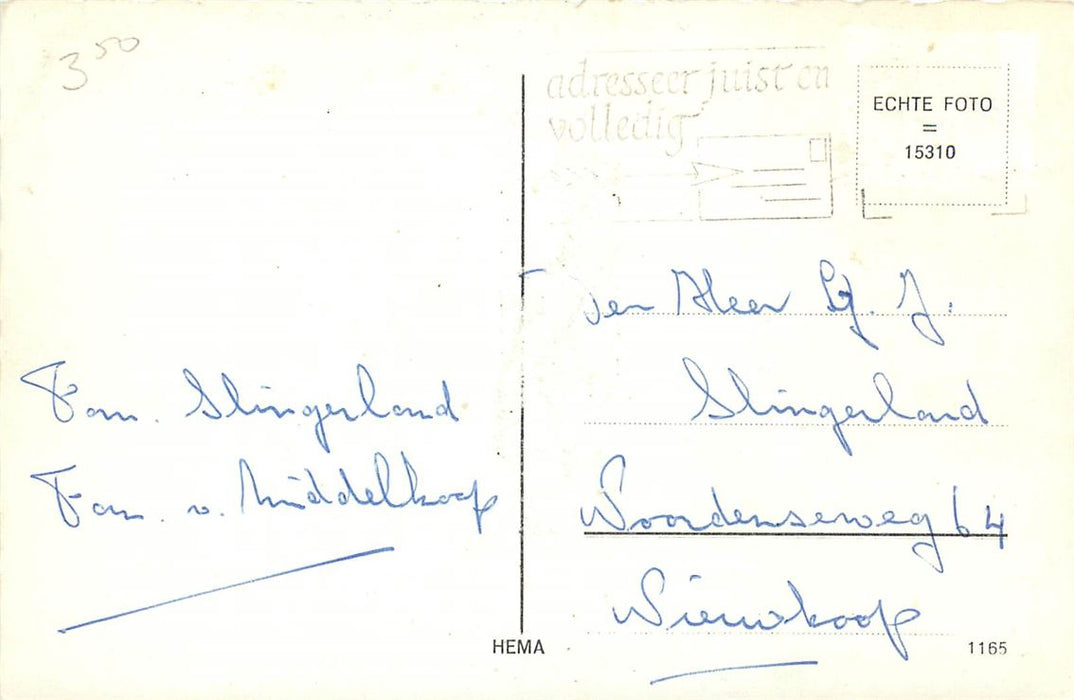 3⁵⁰
adresseer juist en
volledig
ECHTE FOTO
=
15310
Fam. Slingerland
Fam. v. Middelkoop
den Heer G. J.
Slingerland
Woordenseweg 64
Nieuwkoop
HEMA
1165